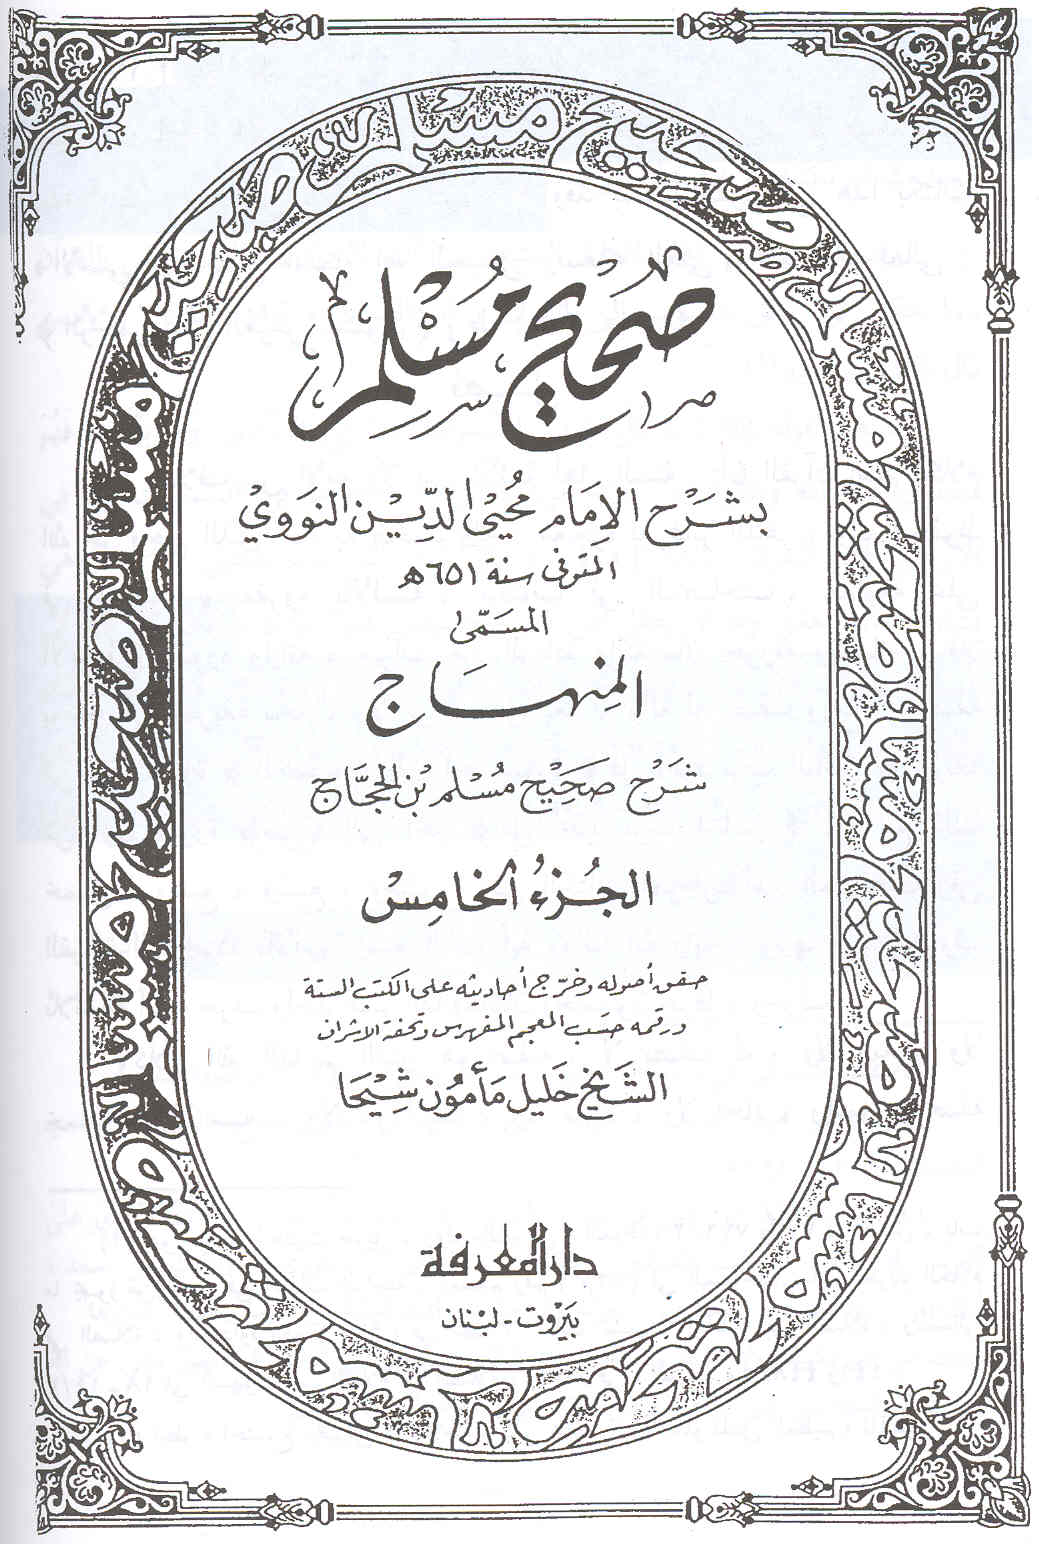 صَحِيْحُ مُسْلِم
بشَرْح الإمَام مُحيي الدِّيْن النَّوَوِيْ
المتوفى سنة ٦٥١هـ
المسمّى
المِنهاج
شَرْح صَحِيْح مُسْلم بْن الحجَّاج
الجُزءُ الخَامِسْ
حقق أصوله وخرّج أحاديثه على الكتب الستة
ورقمه حسَب المعجم المفهرس وتحفة الأشراف
الشَيخ خَليل مَأمُون شِيْحَا
دار المعرفة
بَيْروت - لبْنان